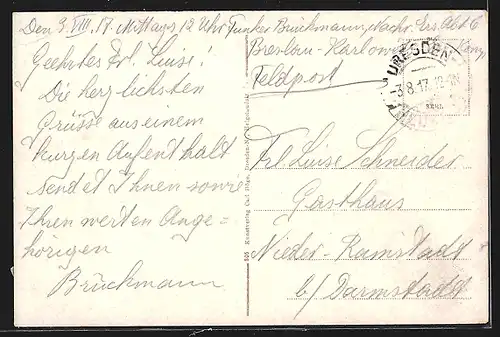 Den 3. VIII. 17. Mittags 12 Uhr Funker Brückmann, Nachr. Ers. Abt. 6
Breslau-Karlowitz Komp.
Feldpost
Geehrtes Frl. Luise!
Die herzlichsten
Grüsse aus einem
kurzen Aufenthalt
sendet Ihnen sowie
Ihren werten Ange=
hörigen
Brückmann
DRESDEN-
-3.8.17. 12-
Frl. Luise Schneider
Gasthaus
Nieder-Ramstadt
b/ Darmstadt